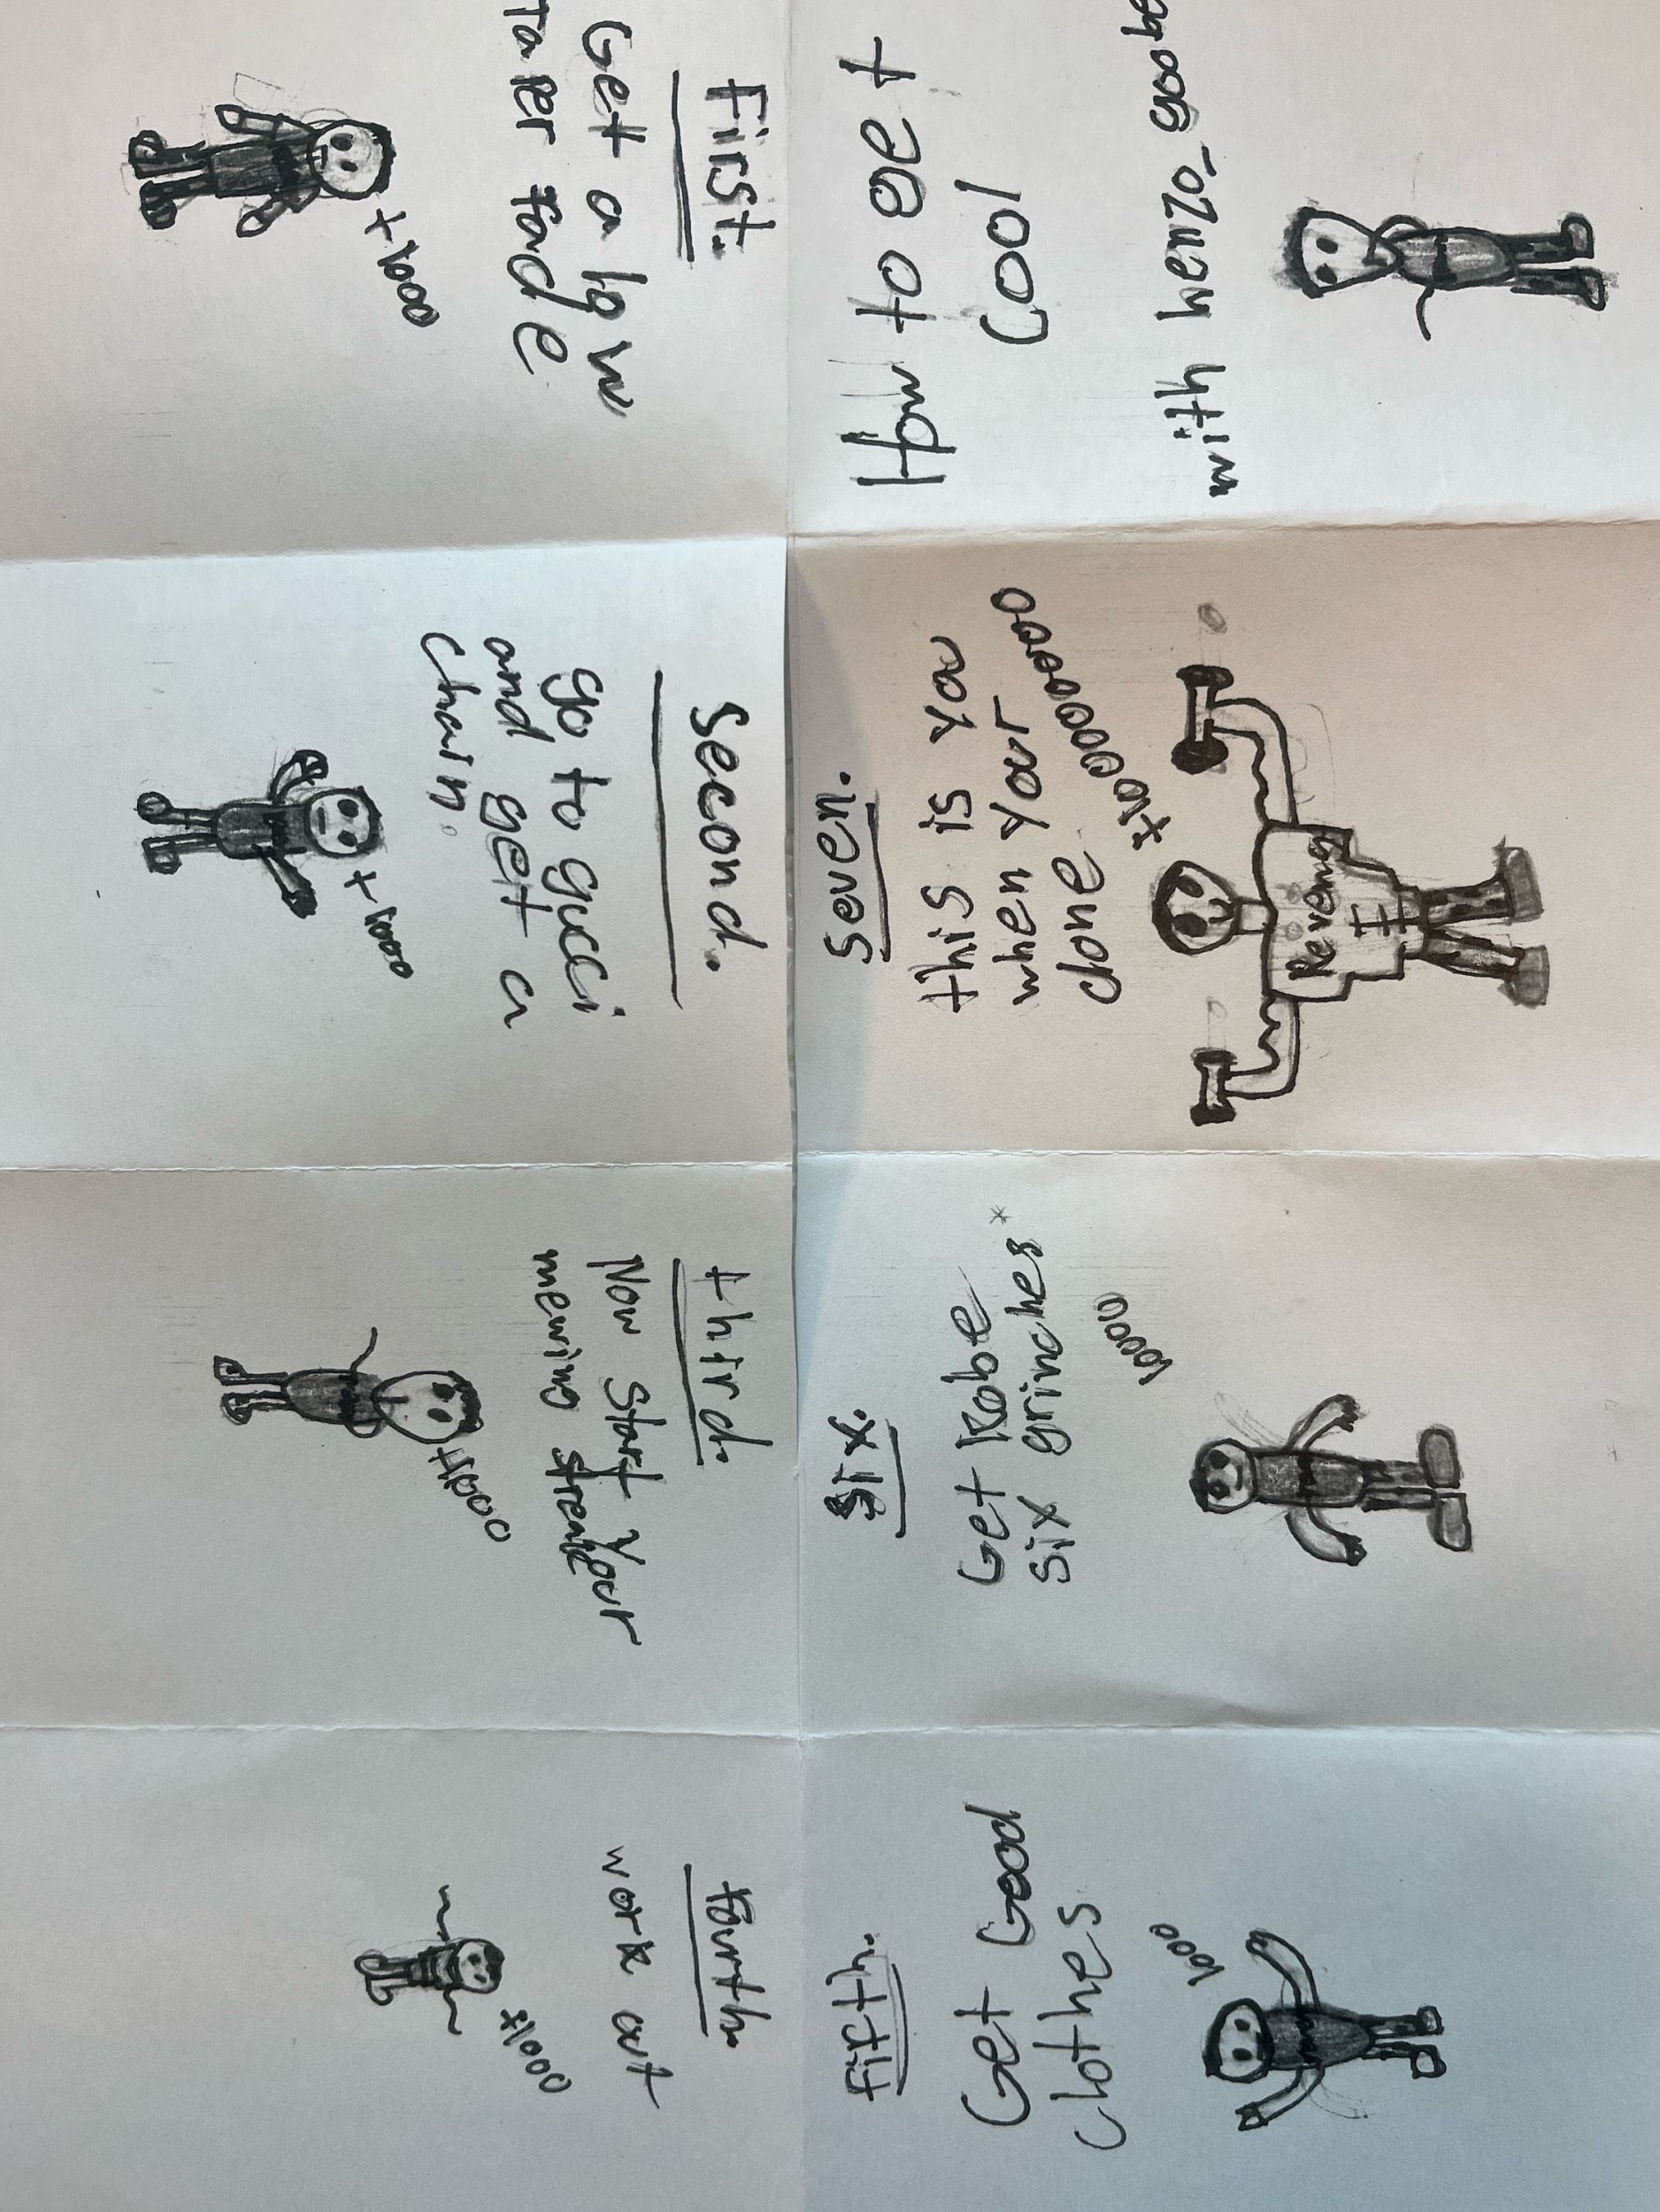 How to get
cool
with
First.
Get a low
Taper fade
+1000
Second.
go to gucci
and get a
chain.
third.
Now start your
mewing streak
+1000
fourth.
work out
+1000
fifth.
Get Good
clothes
1000
six.
Get Kobe
six grinches*
seven.
this is you
when your
done
Reveng
E